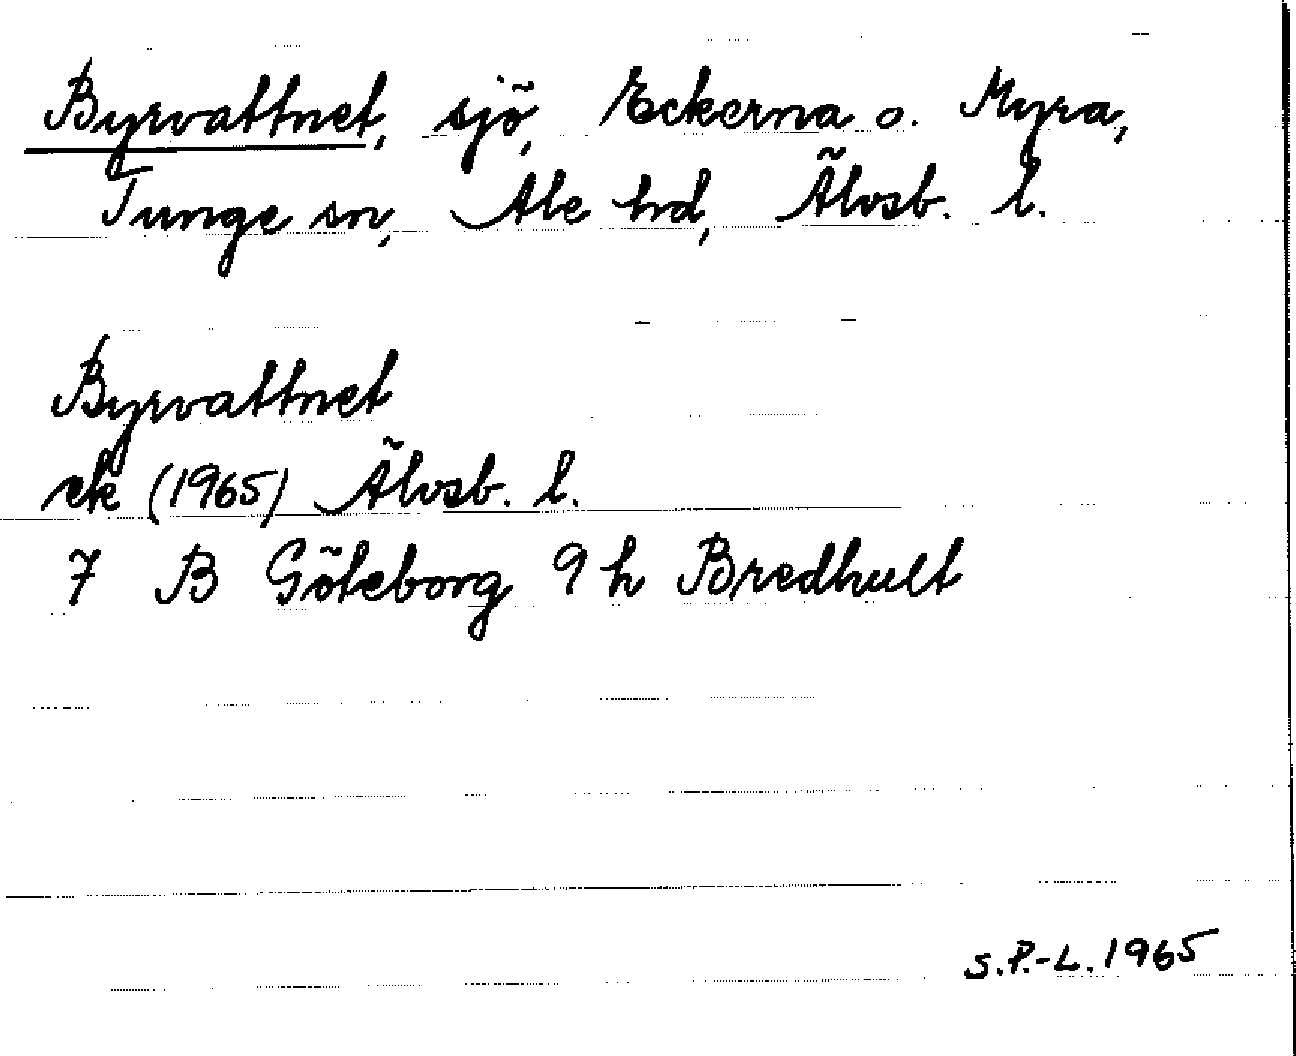 Byrvattnet, sjö, Eckerna o. Myra,
Tunge sn, Ale hd, Älvsb. l.
Byrvattnet
ek (1965) Älvsb. l.
7 B Göteborg 9 h Bredhult
S.P.-L. 1965